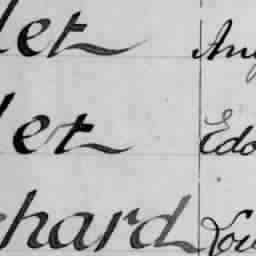 let Aug
let Edo
chard Lou